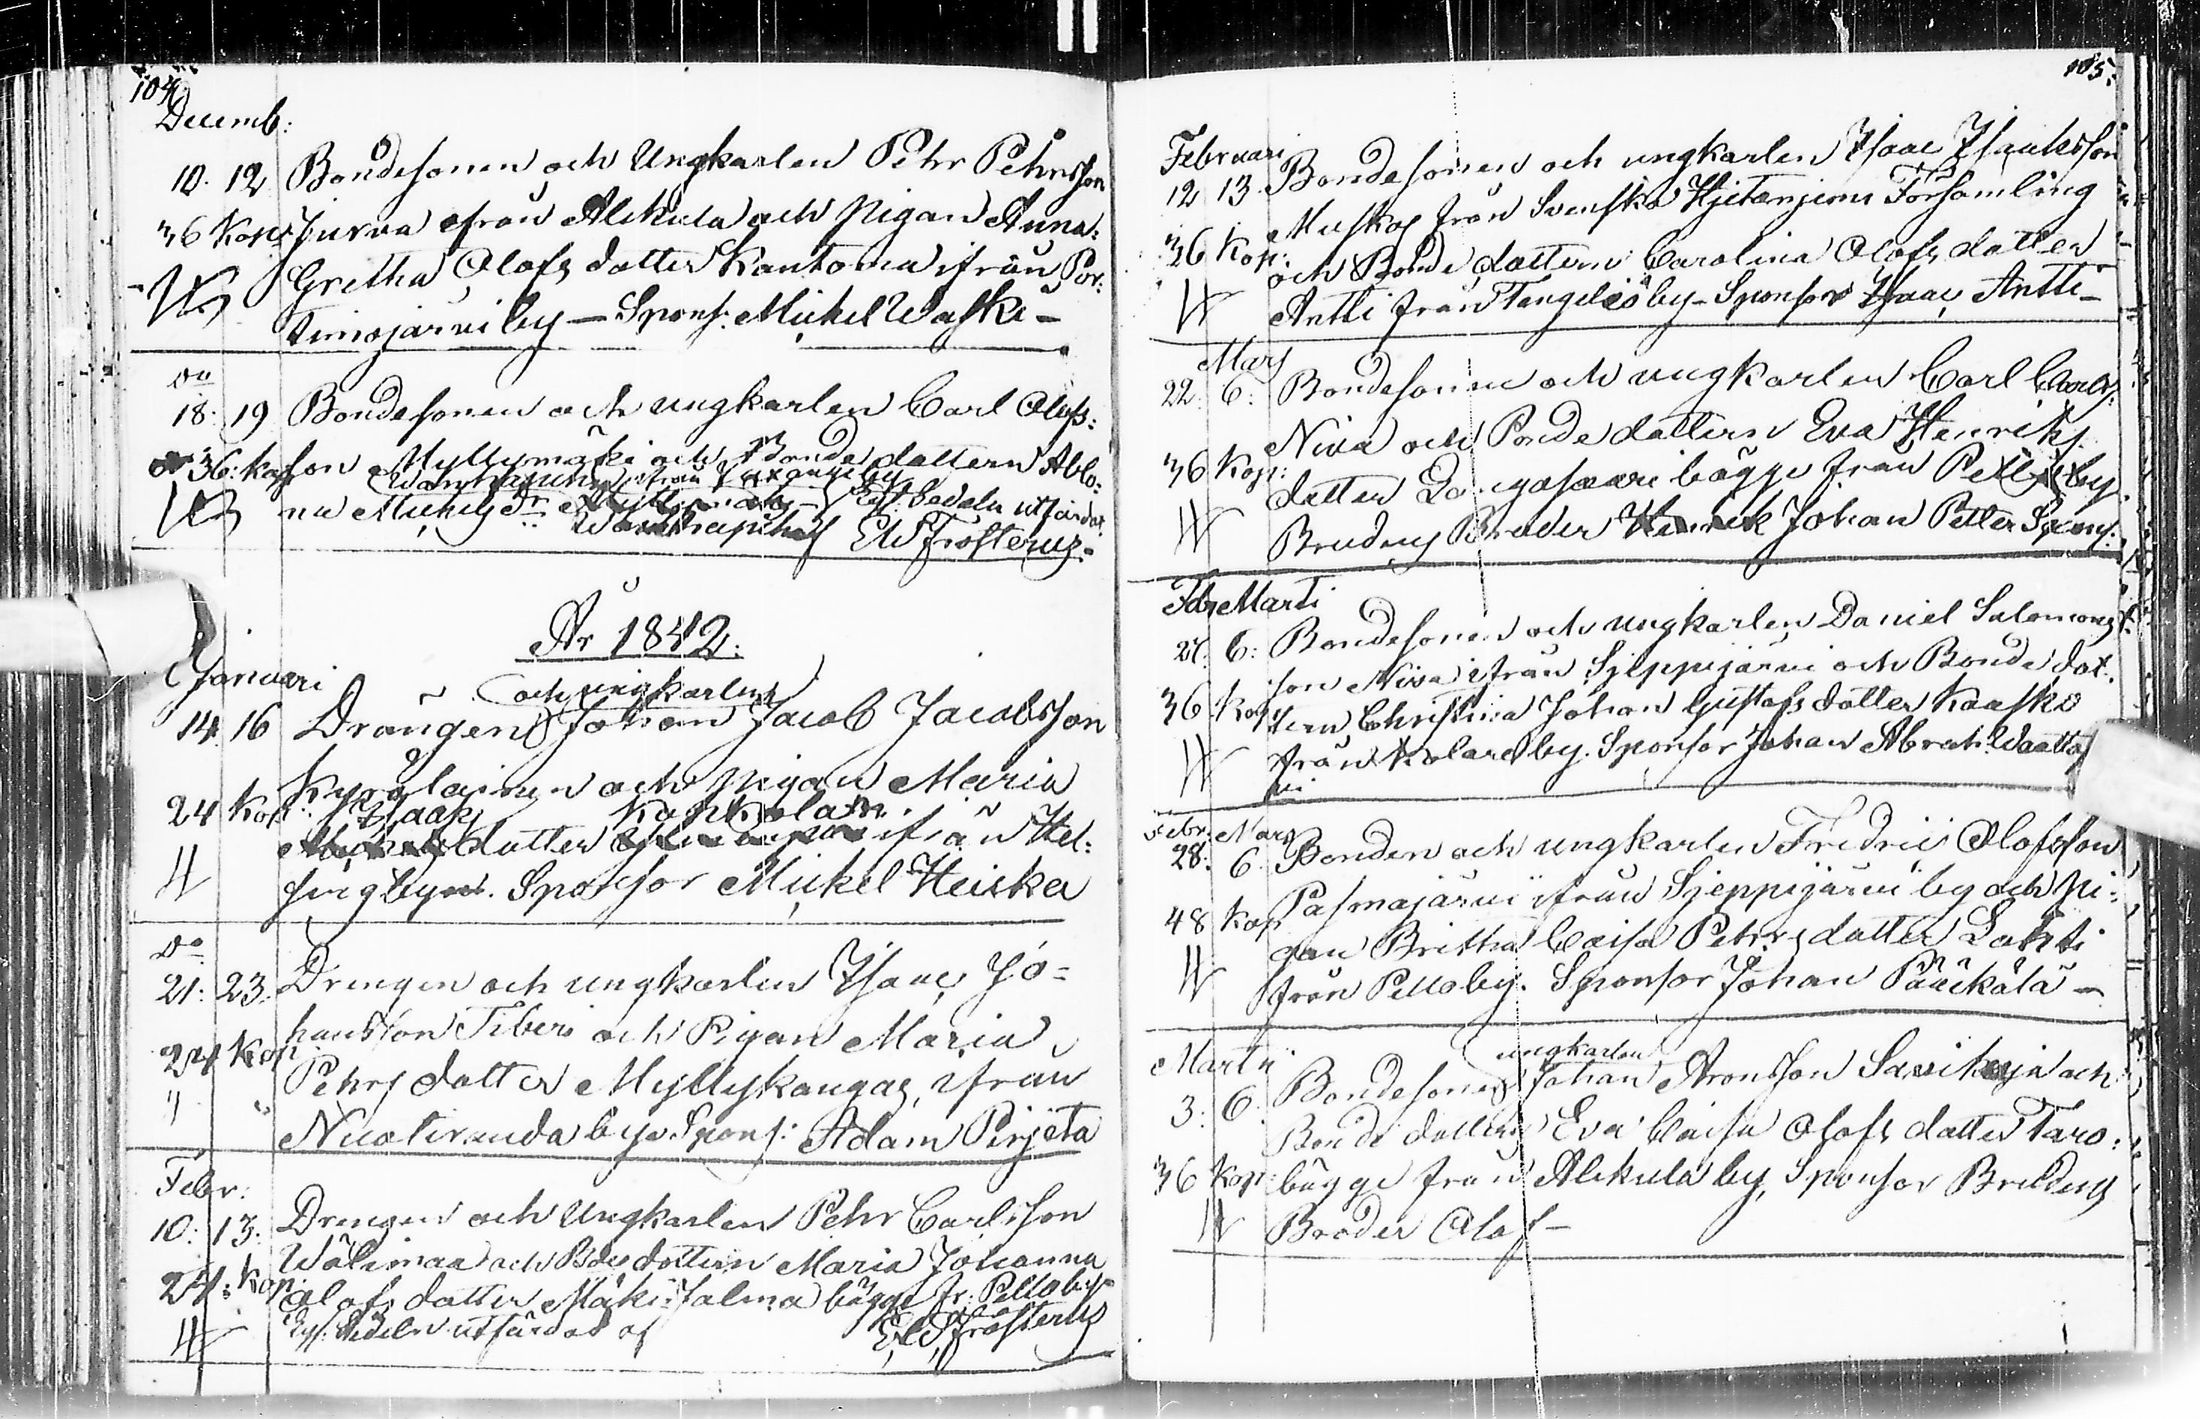 104.
Decemb:
10. 12 Bondesonen och Ungkarlen Pehr Pehrsson
36 Kop: Jurva ifrån Alckula och Pigan Anna
Gretha Olofs dotter Kantoma ifrån Por:
timojärvi by — Spons: Michel Waski —
Do
18. 19 Bondesonen och ungkarlen Carl Olofs:
36: Kop son Myllymäki och Bonde dottern Abbo:
na Michels Dr
Lyst. Sedeln utfärdat
af El Frosterus.
År 1842.
Januari
och ungkarlen
14. 16 Drängen Johan Jacob Jacobsson
och Pigan Maria
24 Kop: Isaac Kankola
dotter ifrån Hel:
sing byn. Sponsor Michel Heicka
Do
21. 23. Drengen och ungkarlen Isaac Jo=
hansson Tiberi och Pigan Maria
24 Kop Pehrs dotter Myllykangas, ifrån
Nuotiranda by. Spons: Adam Pirjeta
Febr:
10. 13. Drengen och Ungkarlen Pehr Carlsson
Wälimaa och Bde dottern Maria Johanna
24: Kop Olofs dotter Mäki-Jalma bägge fr: Pello by
Lys. Sedeln utfärdad af El Frosterus
105.
Februari
12 13. Bondesonen och ungkarlen Isaac Isacksson
Muskos från Svensko Hjetaniemi Församling
36 Kop: och Bonde dottern Carolina Olofs dotter
Antti från Tengeliö by - Sponsor Isaac Antti -
Mars
22. 6. Bondesonen och ungkarlen Carl Carls
Niva och Bonde dottern Eva Henriks
36 Kop: dotter bägge från Pello by.
Brudens Broder Johan Petter Spons:
Febr Marti
27. 6: Bondesonen och ungkarlen Daniel Salomons
son Niva ifrån Sjeppijärvi och Bonde dot.
36 Kop tern Christina Johan Gustafs dotter Kaasko
från Kolare by. Sponsor Johan Abrah. Waatto
vi
Febr: Mars
28. 6. Bonden och ungkarlen Fredric Olofsson
Pasmajärvi ifrån Sjeppijärvi by och Pi:
48 Kop gan Britha Caisa Pehrs dotter Lahti
från Pello by. Sponsor Johan Pääckölä —
Martii
ungkarlen
3. 6. Bondesonen Johan Aronsson Savikuja och
Bonde dottern Eva Caisa Olofs dotter Taro:
36 Kop: bägge från Alckula by, Sponsor Brudens
Broder Olof —